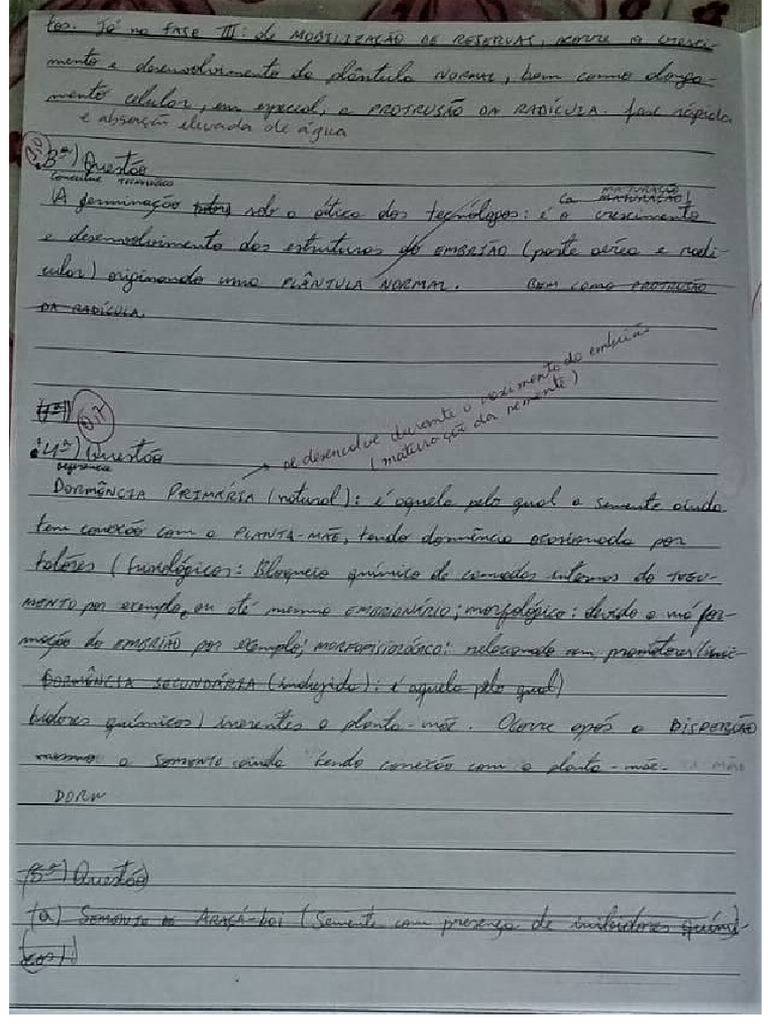 tos. Já na FASE III: de MOBILIZAÇÃO DE RESERVAS, ocorre o cresci-
mento e desenvolvimento da plântula NORMAL, bem como alonga-
mento celular, em especial, a PROTRUSÃO DA RADÍCULA. fase rápida
e absorção elevada de água
3ª) Questão
CONCEITUE TECNOLÓGICO
MATURAÇÃO
(A germinação sob a ótica dos tecnólogos: é o crescimento
e desenvolvimento das estruturas do EMBRIÃO (parte aérea e radi-
cular) originando uma PLÂNTULA NORMAL. BEM COMO PROTRUSÃO
DA RADÍCULA.
(4ª)
0,7
se desenvolve durante o crescimento do embrião
(maturação da semente)
4ª) Questão
DORMÊNCIA PRIMÁRIA (natural): é aquela pelo qual a semente ainda
tem conexão com a PLANTA-MÃE, tendo dormência ocasionada por
fatores (fisiológicos: Bloqueio químico de camadas internas do TEGU-
MENTO por exemplo, ou até mesmo EMBRIONÁRIO; morfológico: devido a má for-
mação do EMBRIÃO por exemplo; MORFOFISIOLÓGICO: relacionado com promotores/inic-
DORMÊNCIA SECUNDÁRIA (induzida): é aquela pelo qual)
bidores químicos) inerentes a planta-mãe. Ocorre após a DISPERSÃO
mesmo a SEMENTE ainda tendo conexão com a planta-mãe.
DORM
5ª) Questão
(a) SEMENTE DE ARAÇÁ-boi (Semente com presença de inibidores quími-
cos)